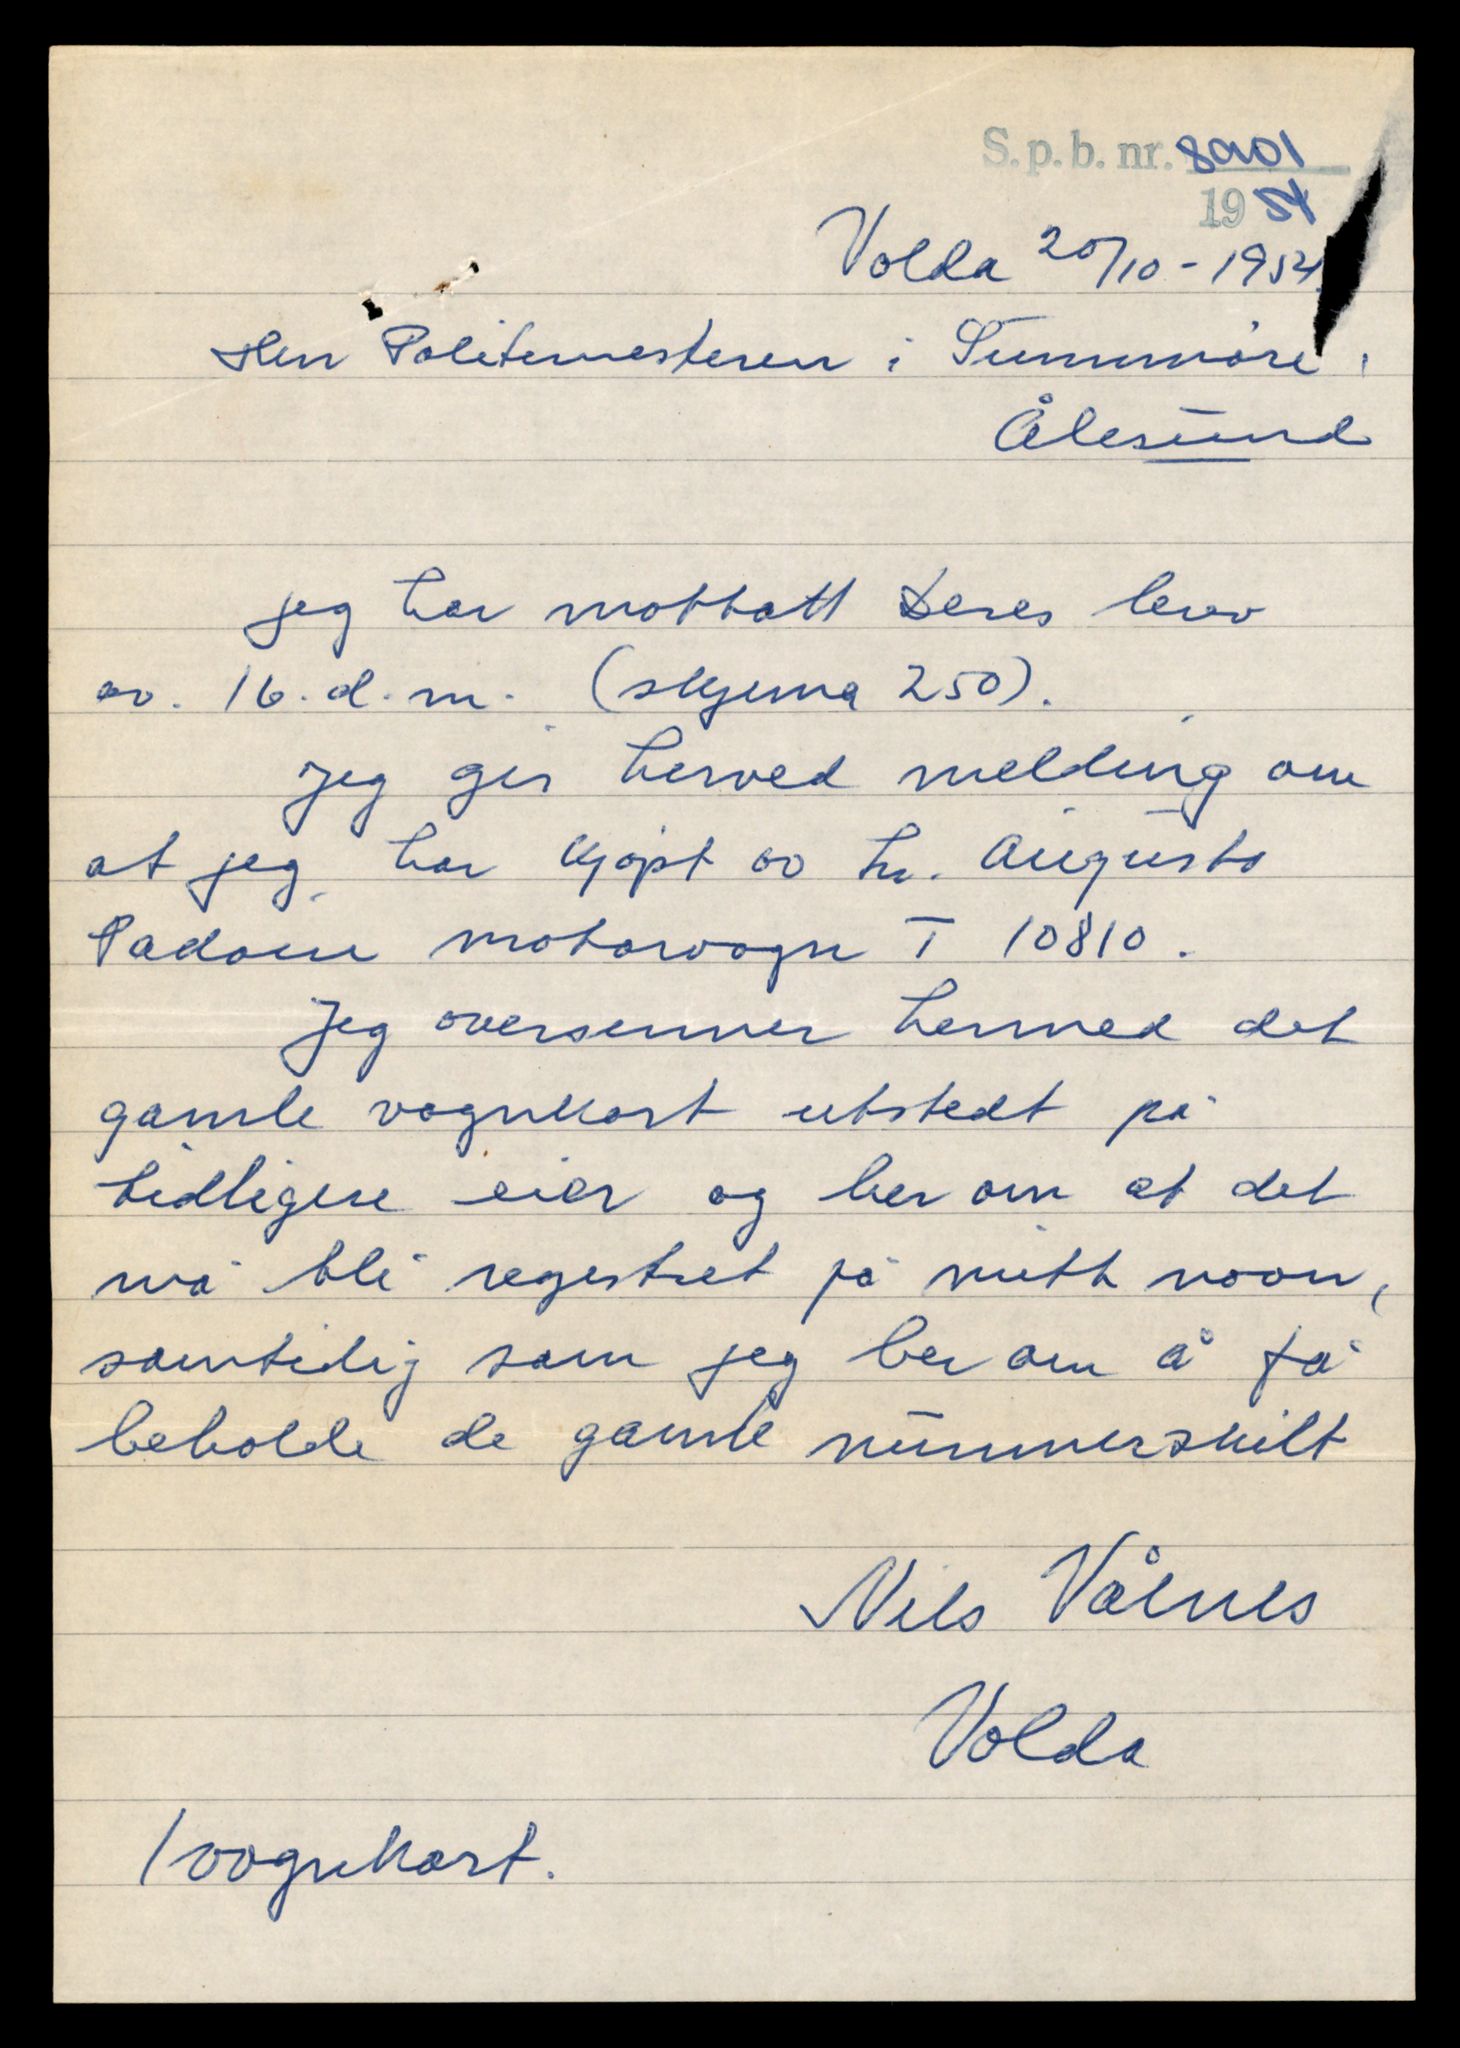 S. p. b. nr. 8901
1954
Volda 20/10 - 1954.
Herr Politimesteren i Sunnmöre,
Ålesund
jeg har mottatt Deres brev
av. 16. d. m. (skjema 250).
Jeg gir herved melding om
at jeg har kjøpt av hr. Augusto
Padoan motorvogn T 10810.
Jeg oversenner hermed det
gamle vognkort utstedt på
tidligere eier og ber om at det
må bli registret på mitt navn,
samtidig som jeg ber om å få
beholde de gamle nummerskilt
Nils Vålnes
Volda
1 vognkort.